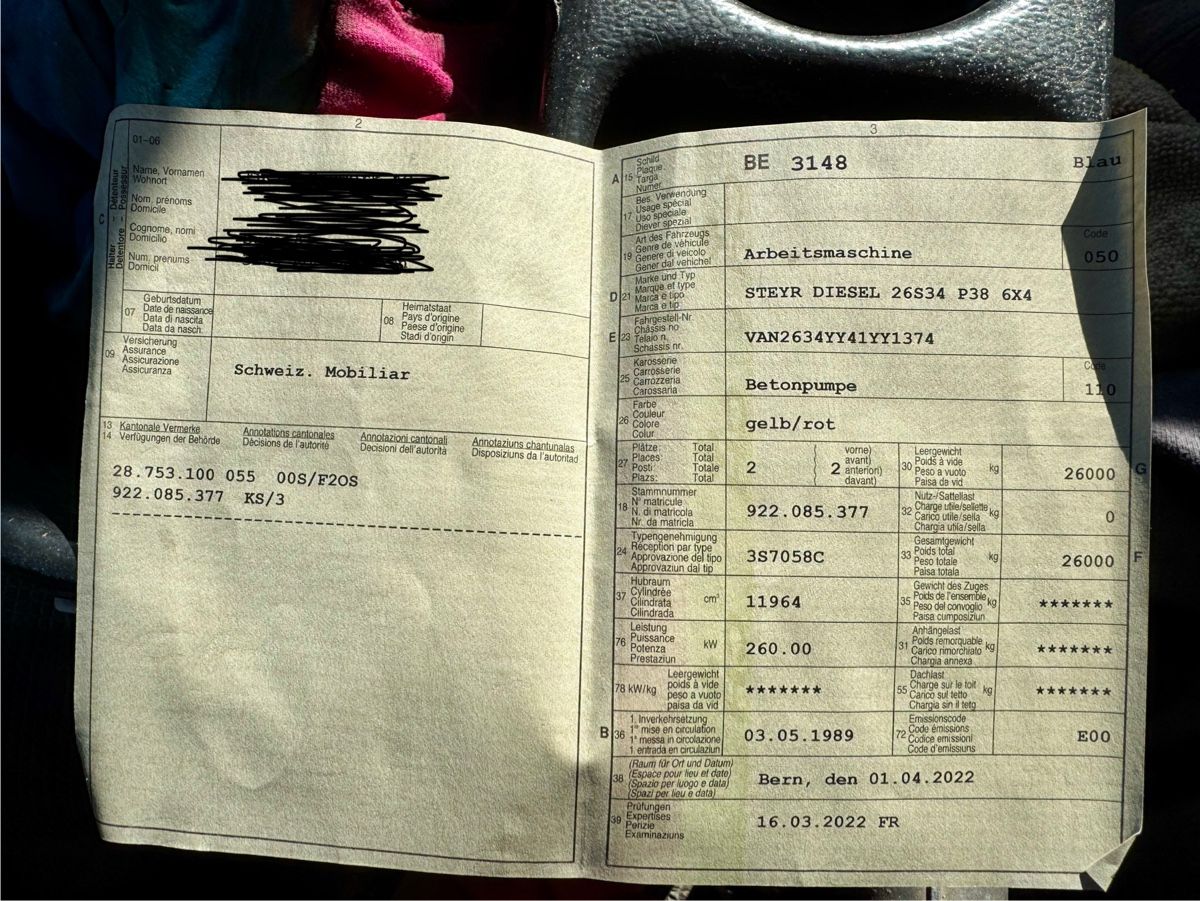 2
01-06
Halter Detentore
Détenteur Possessur
C
Name, Vornamen
Wohnort
Nom, prénoms
Domicile
Cognome, nomi
Domicilio
Num, prenums
Domicil
07
Geburtsdatum
Date de naissance
Data di nascita
Data da nasch.
08
Heimatstaat
Pays d'origine
Paese d'origine
Stadi d'origin
09
Versicherung
Assurance
Assicurazione
Assicuranza
Schweiz. Mobiliar
13 Kantonale Vermerke Annotations cantonales Annotazioni cantonali Annotaziuns chantunalas
14 Verfügungen der Behörde Décisions de l'autorité Decisioni dell'autorità Disposiziuns da l'autoritad
28.753.100 055 00S/F2OS
922.085.377 KS/3
3
A 15
Schild
Plaque
Targa
Numer
BE 3148 Blau
17
Bes. Verwendung
Usage spécial
Uso speciale
Diever spezial
19
Art des Fahrzeugs
Genre de véhicule
Genere di veicolo
Gener dal vehichel
Arbeitsmaschine
Code
050
D 21
Marke und Typ
Marque et type
Marca e tipo
Marca e tip
STEYR DIESEL 26S34 P38 6X4
E 23
Fahrgestell-Nr.
Châssis no
Telaio n.
Schassis nr.
VAN2634YY41YY1374
25
Karosserie
Carrosserie
Carrozzeria
Carossaria
Betonpumpe
Code
110
26
Farbe
Couleur
Colore
Colur
gelb/rot
27
Plätze: Total
Places: Total
Posti: Totale
Plazs: Total
2
vorne)
avant)
2 anteriori)
davant)
30
Leergewicht
Poids à vide
Peso a vuoto
Paisa da vid
kg
26000
G
18
Stammnummer
N° matricule
N. di matricola
Nr. da matricla
922.085.377
32
Nutz-/Sattellast
Charge utile/sellette
Carico utile/sella
Chargia utila/sella
kg
0
24
Typengenehmigung
Réception par type
Approvazione del tipo
Approvaziun dal tip
3S7058C
33
Gesamtgewicht
Poids total
Peso totale
Paisa totala
kg
26000
F
37
Hubraum
Cylindrée
Cilindrata
Cilindrada
cm³
11964
35
Gewicht des Zuges
Poids de l'ensemble
Peso del convoglio
Paisa cumposiziun
kg
*******
76
Leistung
Puissance
Potenza
Prestaziun
kW
260.00
31
Anhängelast
Poids remorquable
Carico rimorchiato
Chargia annexa
kg
*******
78 kW/kg
Leergewicht
poids à vide
peso a vuoto
paisa da vid
*******
55
Dachlast
Charge sur le toit
Carico sul tetto
Chargia sin il tetg
kg
*******
B 36
1. Inverkehrsetzung
1re mise en circulation
1a messa in circolazione
1. entrada en circulaziun
03.05.1989
72
Emissionscode
Code émissions
Codice emissioni
Code d'emissiuns
E00
38
(Raum für Ort und Datum)
(Espace pour lieu et date)
(Spazio per luogo e data)
(Spazi per lieu e data)
Bern, den 01.04.2022
39
Prüfungen
Expertises
Perizie
Examinaziuns
16.03.2022 FR